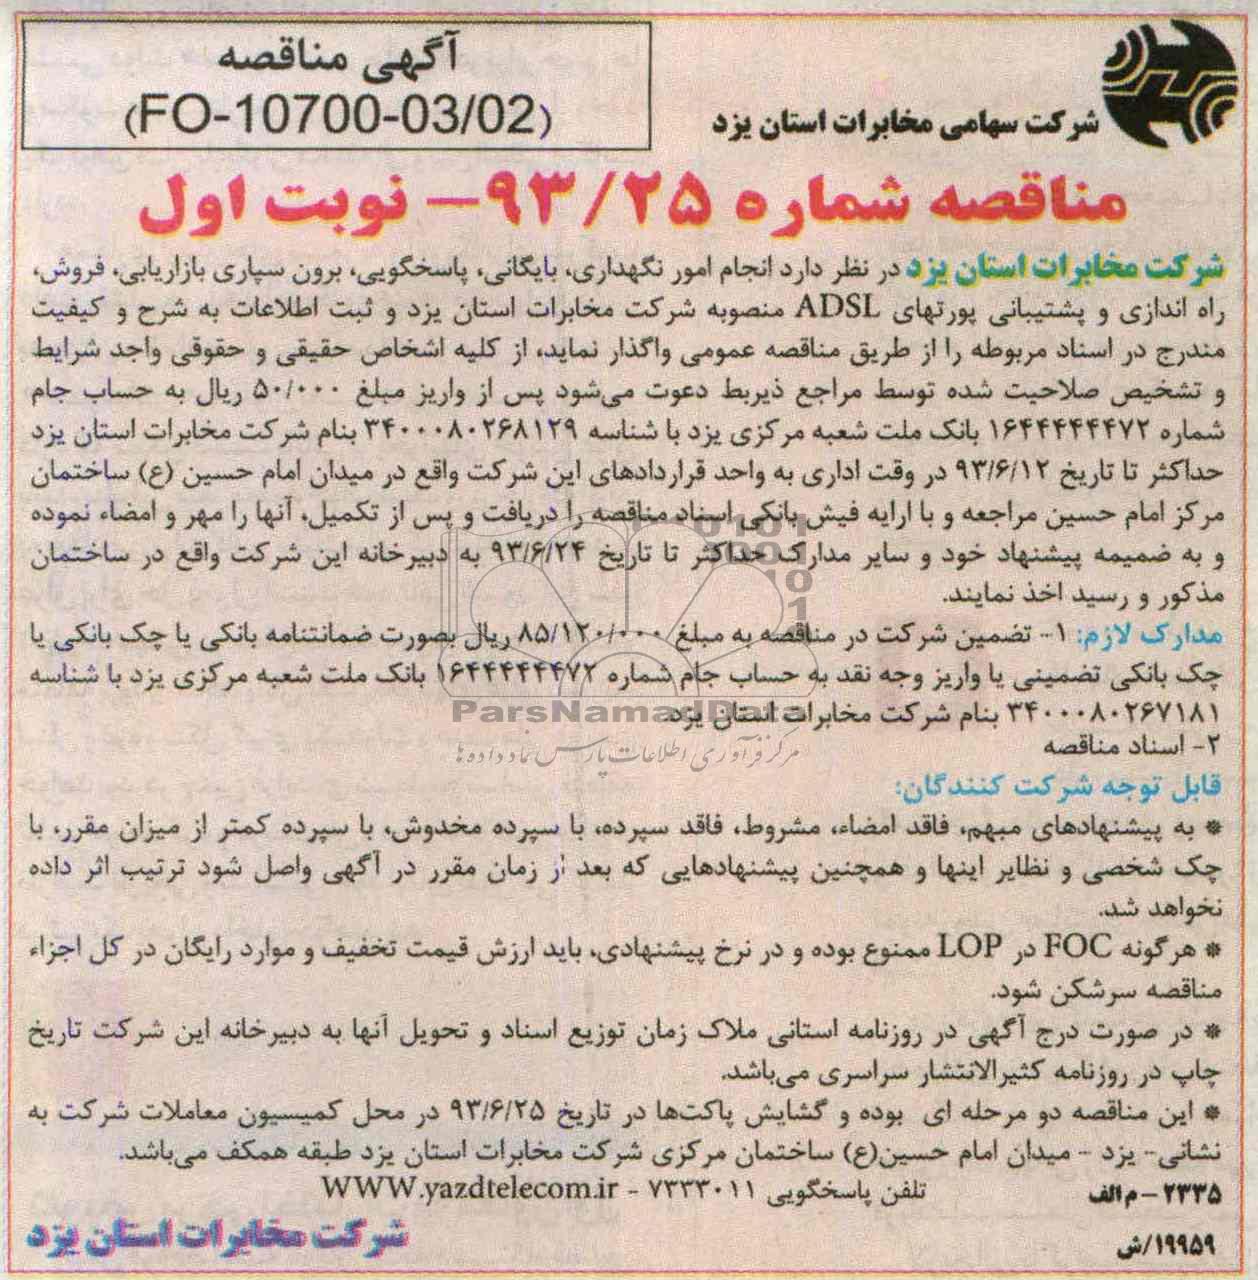 آگهی مناقصه
(FO-10700-03/02)
شرکت سهامی مخابرات استان یزد
مناقصه شماره ۹۳/۲۵– نوبت اول
شرکت مخابرات استان یزد در نظر دارد انجام امور نگهداری، بایگانی، پاسخگویی، برون سپاری بازاریابی، فروش،
راه اندازی و پشتیبانی پورتهای ADSL منصوبه شرکت مخابرات استان یزد و ثبت اطلاعات به شرح و کیفیت
مندرج در اسناد مربوطه را از طریق مناقصه عمومی واگذار نماید، از کلیه اشخاص حقیقی و حقوقی واجد شرایط
و تشخیص صلاحیت شده توسط مراجع ذیربط دعوت می‌شود پس از واریز مبلغ ۵۰/۰۰۰ ریال به حساب جام
شماره ۱۶۴۴۴۴۴۴۷۲ بانک ملت شعبه مرکزی یزد با شناسه ۳۴۰۰۰۸۰۲۶۸۱۲۹ بنام شرکت مخابرات استان یزد
حداکثر تا تاریخ ۹۳/۶/۱۲ در وقت اداری به واحد قراردادهای این شرکت واقع در میدان امام حسین (ع) ساختمان
مرکز امام حسین مراجعه و با ارایه فیش بانکی اسناد مناقصه را دریافت و پس از تکمیل، آنها را مهر و امضاء نموده
و به ضمیمه پیشنهاد خود و سایر مدارک حداکثر تا تاریخ ۹۳/۶/۲۴ به دبیرخانه این شرکت واقع در ساختمان
مذکور و رسید اخذ نمایند.
مدارک لازم: ۱- تضمین شرکت در مناقصه به مبلغ ۸۵/۱۲۰/۰۰۰ ریال بصورت ضمانتنامه بانکی یا چک بانکی یا
چک بانکی تضمینی یا واریز وجه نقد به حساب جام شماره ۱۶۴۴۴۴۴۴۷۲ بانک ملت شعبه مرکزی یزد با شناسه
۳۴۰۰۰۸۰۲۶۷۱۸۱ بنام شرکت مخابرات استان یزد.
ParsNamadData
مرکز فرآوری اطلاعات پارس نماد داده‌ها
۲- اسناد مناقصه
قابل توجه شرکت کنندگان:
* به پیشنهادهای مبهم، فاقد امضاء، مشروط، فاقد سپرده، با سپرده مخدوش، با سپرده کمتر از میزان مقرر، با
چک شخصی و نظایر اینها و همچنین پیشنهادهایی که بعد از زمان مقرر در آگهی واصل شود ترتیب اثر داده
نخواهد شد.
* هرگونه FOC در LOP ممنوع بوده و در نرخ پیشنهادی، باید ارزش قیمت تخفیف و موارد رایگان در کل اجزاء
مناقصه سرشکن شود.
* در صورت درج آگهی در روزنامه استانی ملاک زمان توزیع اسناد و تحویل آنها به دبیرخانه این شرکت تاریخ
چاپ در روزنامه کثیرالانتشار سراسری می‌باشد.
* این مناقصه دو مرحله ای بوده و گشایش پاکت‌ها در تاریخ ۹۳/۶/۲۵ در محل کمیسیون معاملات شرکت به
نشانی- یزد - میدان امام حسین(ع) ساختمان مرکزی شرکت مخابرات استان یزد طبقه همکف می‌باشد.
تلفن پاسخگویی ۷۳۳۳۰۱۱ - WWW.yazdtelecom.ir
۲۳۳۵- م الف
شرکت مخابرات استان یزد
۱۹۹۵۹/ش